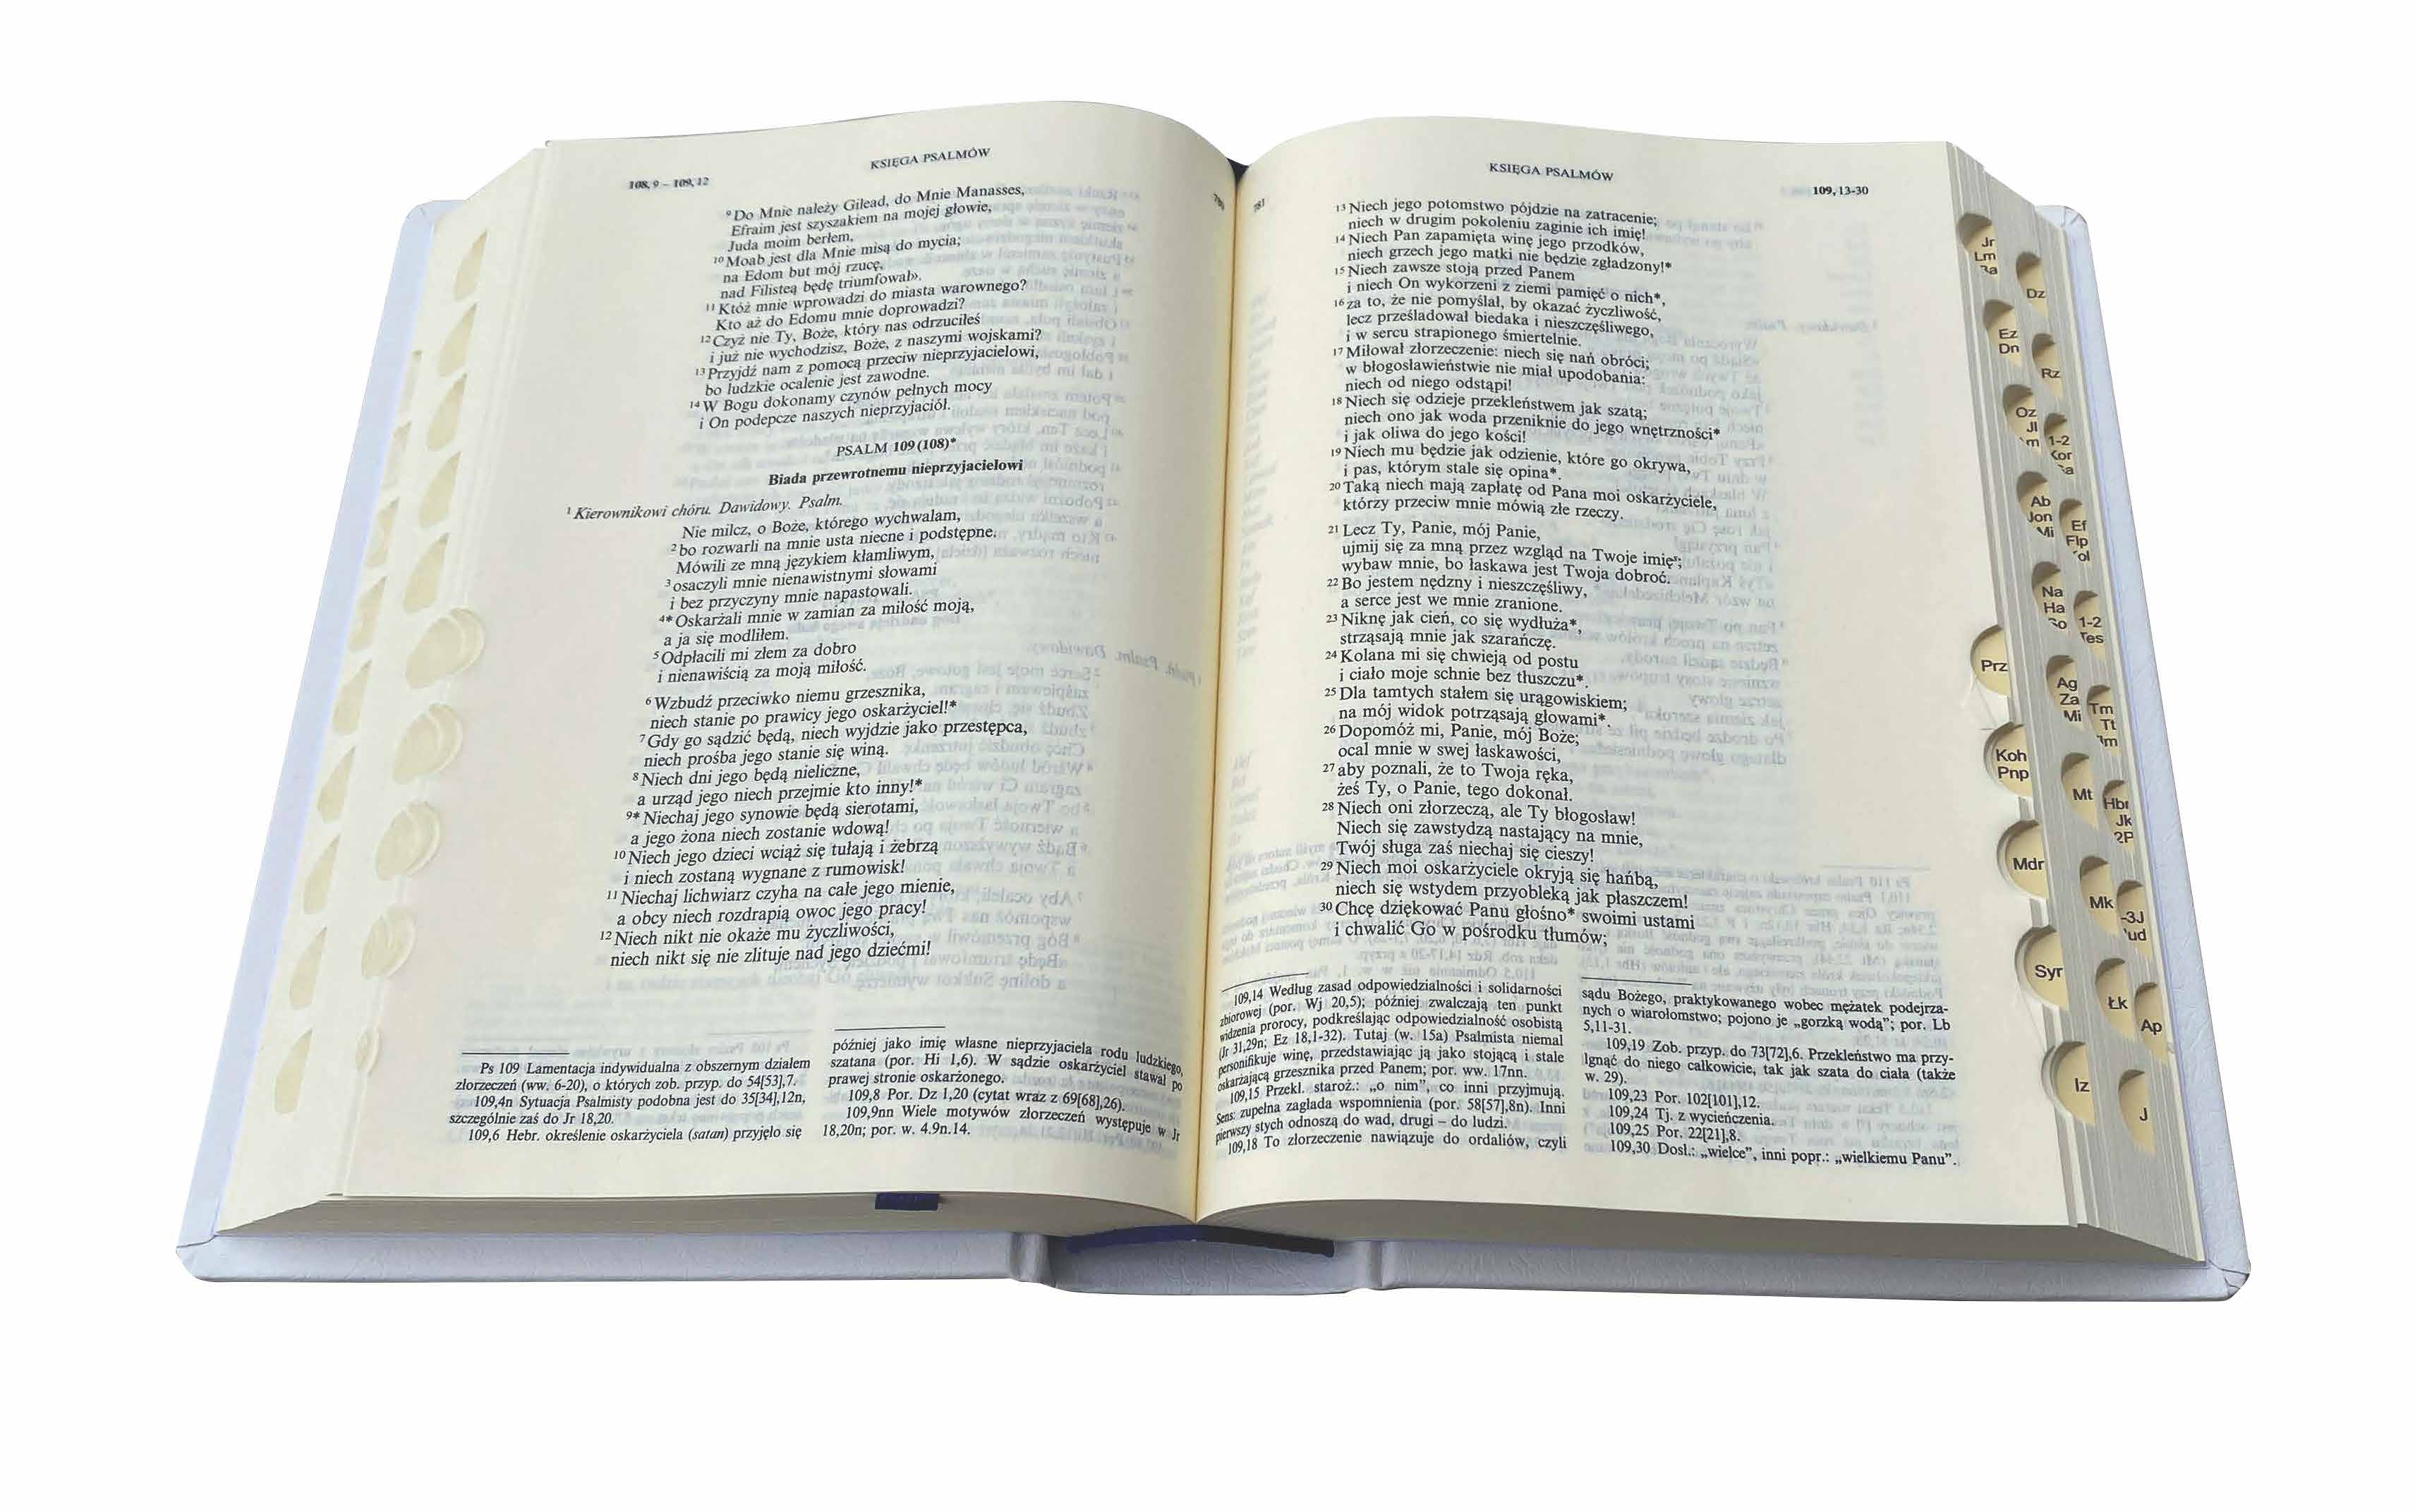 108, 9 – 109, 12
KSIĘGA PSALMÓW
780
⁹ Do Mnie należy Gilead, do Mnie Manasses,
Efraim jest szyszakiem na mojej głowie,
Juda moim berłem,
¹⁰ Moab jest dla Mnie misą do mycia;
na Edom but mój rzucę,
nad Filisteą będę triumfował».
¹¹ Któż mnie wprowadzi do miasta warownego?
Kto aż do Edomu mnie doprowadzi?
¹² Czyż nie Ty, Boże, który nas odrzuciłeś
i już nie wychodzisz, Boże, z naszymi wojskami?
¹³ Przyjdź nam z pomocą przeciw nieprzyjacielowi,
bo ludzkie ocalenie jest zawodne.
¹⁴ W Bogu dokonamy czynów pełnych mocy
i On podepcze naszych nieprzyjaciół.
PSALM 109 (108)*
Biada przewrotnemu nieprzyjacielowi
¹ Kierownikowi chóru. Dawidowy. Psalm.
Nie milcz, o Boże, którego wychwalam,
² bo rozwarli na mnie usta niecne i podstępne.
Mówili ze mną językiem kłamliwym,
³ osaczyli mnie nienawistnymi słowami
i bez przyczyny mnie napastowali.
⁴* Oskarżali mnie w zamian za miłość moją,
a ja się modliłem.
⁵ Odpłacili mi złem za dobro
i nienawiścią za moją miłość.
⁶ Wzbudź przeciwko niemu grzesznika,
niech stanie po prawicy jego oskarżyciel!*
⁷ Gdy go sądzić będą, niech wyjdzie jako przestępca,
niech prośba jego stanie się winą.
⁸ Niech dni jego będą nieliczne,
a urząd jego niech przejmie kto inny!*
⁹* Niechaj jego synowie będą sierotami,
a jego żona niech zostanie wdową!
¹⁰ Niech jego dzieci wciąż się tułają i żebrzą
i niech zostaną wygnane z rumowisk!
¹¹ Niechaj lichwiarz czyha na całe jego mienie,
a obcy niech rozdrapią owoc jego pracy!
¹² Niech nikt nie okaże mu życzliwości,
niech nikt się nie zlituje nad jego dziećmi!
Ps 109 Lamentacja indywidualna z obszernym działem
złorzeczeń (ww. 6-20), o których zob. przyp. do 54[53],7.
109,4n Sytuacja Psalmisty podobna jest do 35[34],12n,
szczególnie zaś do Jr 18,20.
109,6 Hebr. określenie oskarżyciela (satan) przyjęło się
później jako imię własne nieprzyjaciela rodu ludzkiego,
szatana (por. Hi 1,6). W sądzie oskarżyciel stawał po
prawej stronie oskarżonego.
109,8 Por. Dz 1,20 (cytat wraz z 69[68],26).
109,9nn Wiele motywów złorzeczeń występuje w Jr
18,20n; por. w. 4.9n.14.
781
KSIĘGA PSALMÓW
109, 13-30
¹³ Niech jego potomstwo pójdzie na zatracenie;
niech w drugim pokoleniu zaginie ich imię!
¹⁴ Niech Pan zapamięta winę jego przodków,
niech grzech jego matki nie będzie zgładzony!*
¹⁵ Niech zawsze stoją przed Panem
i niech On wykorzeni z ziemi pamięć o nich*,
¹⁶ za to, że nie pomyślał, by okazać życzliwość,
lecz prześladował biedaka i nieszczęśliwego,
i w sercu strapionego śmiertelnie.
¹⁷ Miłował złorzeczenie: niech się nań obróci;
w błogosławieństwie nie miał upodobania:
niech od niego odstąpi!
¹⁸ Niech się odzieje przekleństwem jak szatą;
niech ono jak woda przeniknie do jego wnętrzności*
i jak oliwa do jego kości!
¹⁹ Niech mu będzie jak odzienie, które go okrywa,
i pas, którym stale się opina*.
²⁰ Taką niech mają zapłatę od Pana moi oskarżyciele,
którzy przeciw mnie mówią złe rzeczy.
²¹ Lecz Ty, Panie, mój Panie,
ujmij się za mną przez wzgląd na Twoje imię*;
wybaw mnie, bo łaskawa jest Twoja dobroć.
²² Bo jestem nędzny i nieszczęśliwy,
a serce jest we mnie zranione.
²³ Niknę jak cień, co się wydłuża*,
strząsają mnie jak szarańczę.
²⁴ Kolana mi się chwieją od postu
i ciało moje schnie bez tłuszczu*.
²⁵ Dla tamtych stałem się urągowiskiem;
na mój widok potrząsają głowami*.
²⁶ Dopomóż mi, Panie, mój Boże;
ocal mnie w swej łaskawości,
²⁷ aby poznali, że to Twoja ręka,
żeś Ty, o Panie, tego dokonał.
²⁸ Niech oni złorzeczą, ale Ty błogosław!
Niech się zawstydzą nastający na mnie,
Twój sługa zaś niechaj się cieszy!
²⁹ Niech moi oskarżyciele okryją się hańbą,
niech się wstydem przyobleką jak płaszczem!
³⁰ Chcę dziękować Panu głośno* swoimi ustami
i chwalić Go w pośrodku tłumów;
109,14 Według zasad odpowiedzialności i solidarności
zbiorowej (por. Wj 20,5); później zwalczają ten punkt
widzenia prorocy, podkreślając odpowiedzialność osobistą
(Jr 31,29n; Ez 18,1-32). Tutaj (w. 15a) Psalmista niemal
personifikuje winę, przedstawiając ją jako stojącą i stale
oskarżającą grzesznika przed Panem; por. ww. 17nn.
109,15 Przekł. staroż.: „o nim”, co inni przyjmują.
Sens: zupełna zagłada wspomnienia (por. 58[57],8n). Inni
pierwszy stych odnoszą do wad, drugi – do ludzi.
109,18 To złorzeczenie nawiązuje do ordaliów, czyli
sądu Bożego, praktykowanego wobec mężatek podejrza-
nych o wiarołomstwo; pojono je „gorzką wodą”; por. Lb
5,11-31.
109,19 Zob. przyp. do 73[72],6. Przekleństwo ma przy-
lgnąć do niego całkowicie, tak jak szata do ciała (także
w. 29).
109,23 Por. 102[101],12.
109,24 Tj. z wycieńczenia.
109,25 Por. 22[21],8.
109,30 Dosł.: „wielce”, inni popr.: „wielkiemu Panu”.
Prz
Koh
Pnp
Mdr
Syr
Iz
Jr
Lm
Ez
Dn
Oz
Jl
Ab
Jon
Mi
Na
Ha
So
Ag
Za
Mt
Mk
Łk
J
Dz
Rz
1-2
Kor
Ef
Flp
1-2
Tes
Tm
Tt
Hbr
Jk
2P
Ap